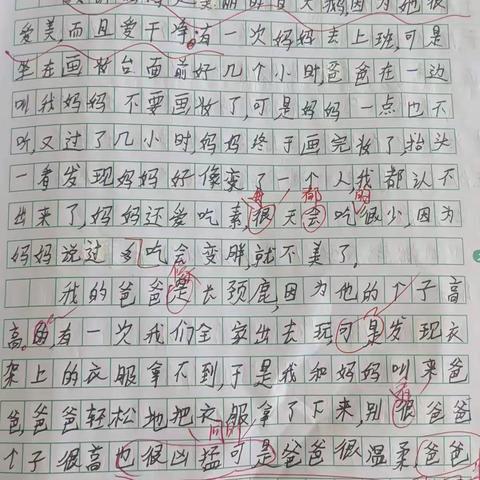 美丽的白天鹅,因为她很
爱美,而且爱干净,有一次妈妈去上班,可是
坐在画妆台面前好几个小时,爸爸在一边
叫我妈妈不要画妆了,可是妈妈一点也不
听,又过了几小时,妈妈终于画完妆了,抬头
一看发现妈妈好像变了一个人,我都认不
出来了,妈妈还爱吃素,很天会吃很少,因为
每 都 的
妈妈说过多吃会变胖,就不美了。
我的爸爸是长颈鹿,因为他的个子高
高的,有一次我们全家出去玩,可是发现衣
架上的衣服拿不到,于是我和妈妈叫来爸
爸,爸爸轻松地把衣服拿了下来,别很爸爸
个子很高也很凶猛可是爸爸很温柔,爸爸